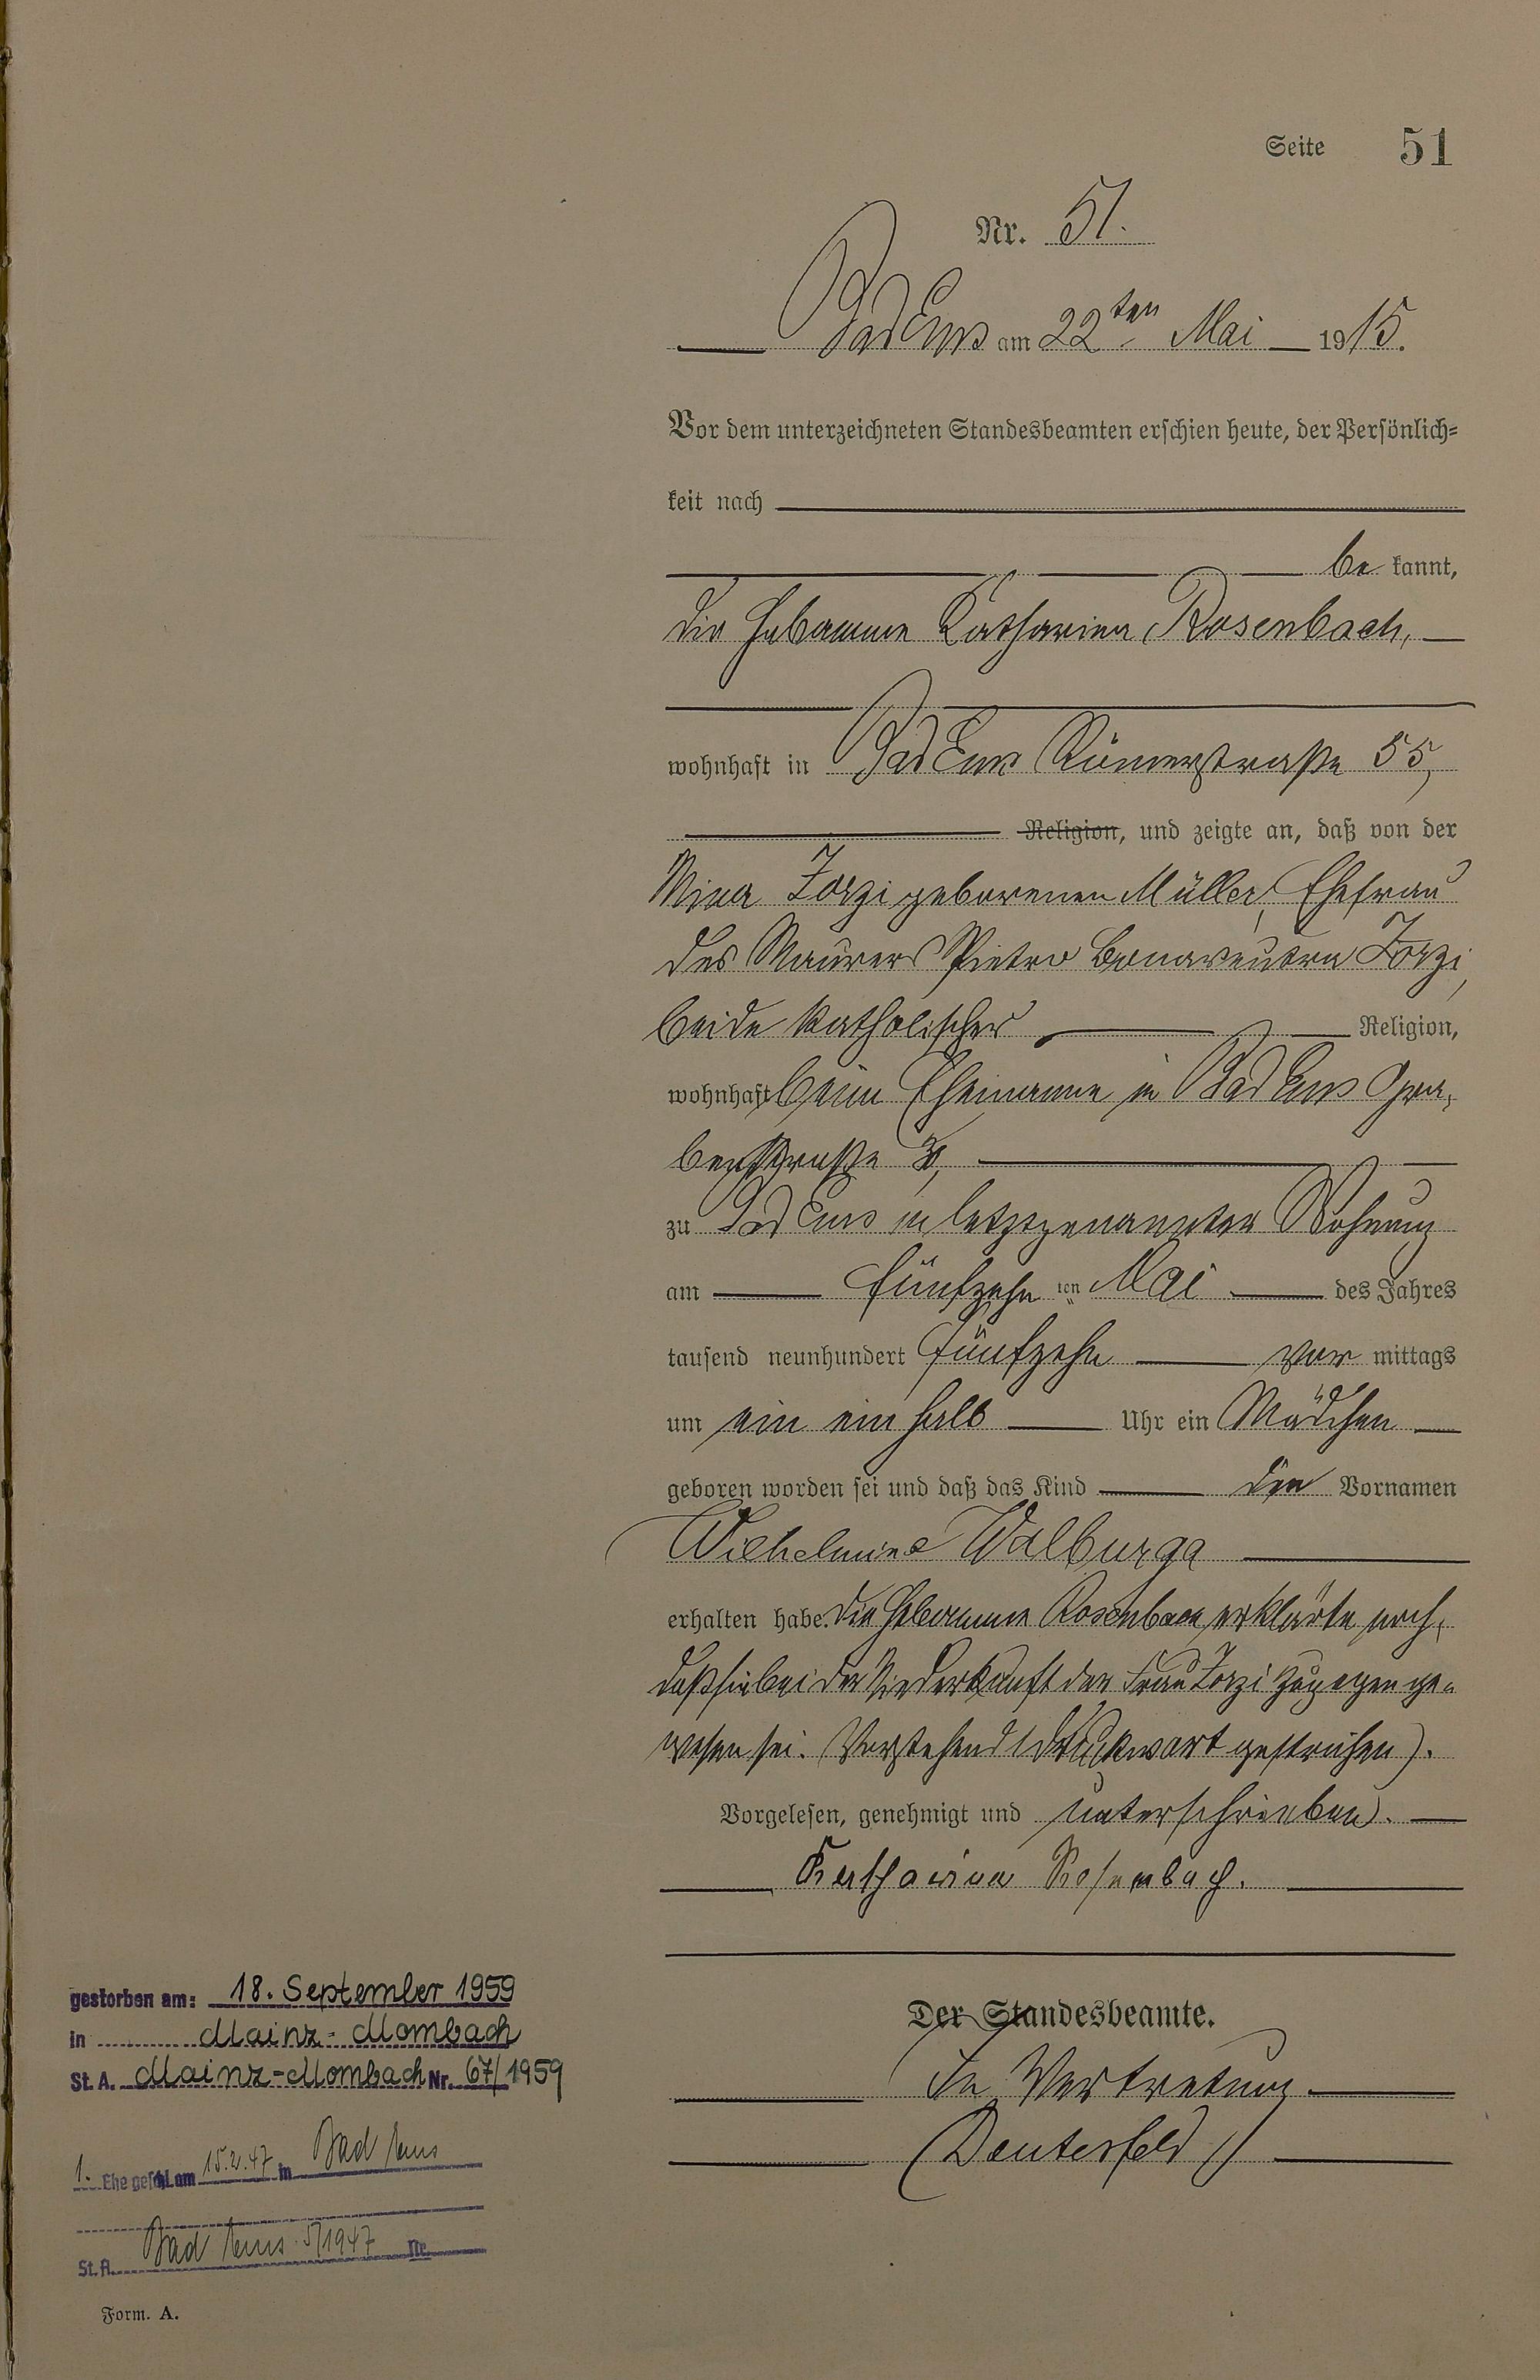 Seite 51
Nr. 51.
Bad Ems am 22ten Mai 1915.
Vor dem unterzeichneten Standesbeamten erschien heute, der Persönlich=
keit nach
be kannt,
die Hebamme Katharina Rosenbach,
wohnhaft in Bad Ems Römerstraße 55,
Religion, und zeigte an, daß von der
Mina Zorzi geborenen Müller, Ehefrau
des Maurers Pietro Bonaventura Zorzi,
beide katholischer Religion,
wohnhaft beim Ehemanne in Bad Ems Gra-
benstraße
zu Bad Ems in letztgenannter Wohnung
am fünfzehn ten Mai des Jahres
tausend neunhundert fünfzehn vor mittags
um ein ein halb Uhr ein Mädchen
geboren worden sei und daß das Kind die Vornamen
Wilhelmine Walburga
erhalten habe. Die Hebamme Rosenbach erklärte noch,
daß sie bei der Niederkunft der Frau Zorzi zugegen ge-
wesen sei. Vorstehend 1 Druckwort gestrichen).
Vorgelesen, genehmigt und unterschrieben.
Katharina Rosenbach.
Der Standesbeamte.
In Vertretung
gestorben am: 18. September 1959
in Mainz-Mombach
St. A. Mainz-Mombach Nr. 67/1959
1. Ehe geschl. am 15.2.47 in Bad Ems
St. A. Bad Ems 5/1947 Nr.
Form. A.